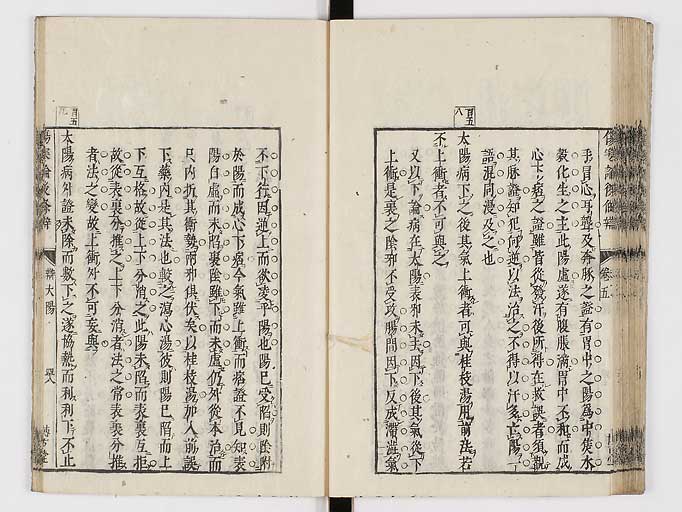 手冒心耳聾及奔豚之證有胃中之陽為中焦水
穀化生之主此陽虛遂有腹脹滿胃中不和而成
心下痞之證雖皆從發汗後所得在救誤者須觀
其脉證知犯何逆以法治之不得以汗多亡陽一
語混同漫及之也
百五
八
太陽病下之後其氣上衝者可與桂枝湯用前法若
不上衝者不可與之
又以下論病在太陽表邪未去因下後其氣從下
上衝是裏之陰邪不受攻腸間因下反成濡滋氣
傷寒論後條辨 卷五
不下行因逆上而欲凌乎陽也陽已受陷則陰附
於陽而成心下痞今氣雖上衝而痞證不見知表
陽自虛而未陷裏陰雖下而未虛仍從本治而
只內折其衝勢兩邪俱伏矣以桂枝湯加入前誤
下藥內是其法也較之瀉心湯彼則陽已陷而上
下互格故從上下分消之此陽未陷而表裏互拒
故從表裏分推之上下分消者法之常表裏分推
者法之變故上衝外不可妄與
百五
九
太陽病外證未除而數下之遂協熱而利利下不止
辨太陽